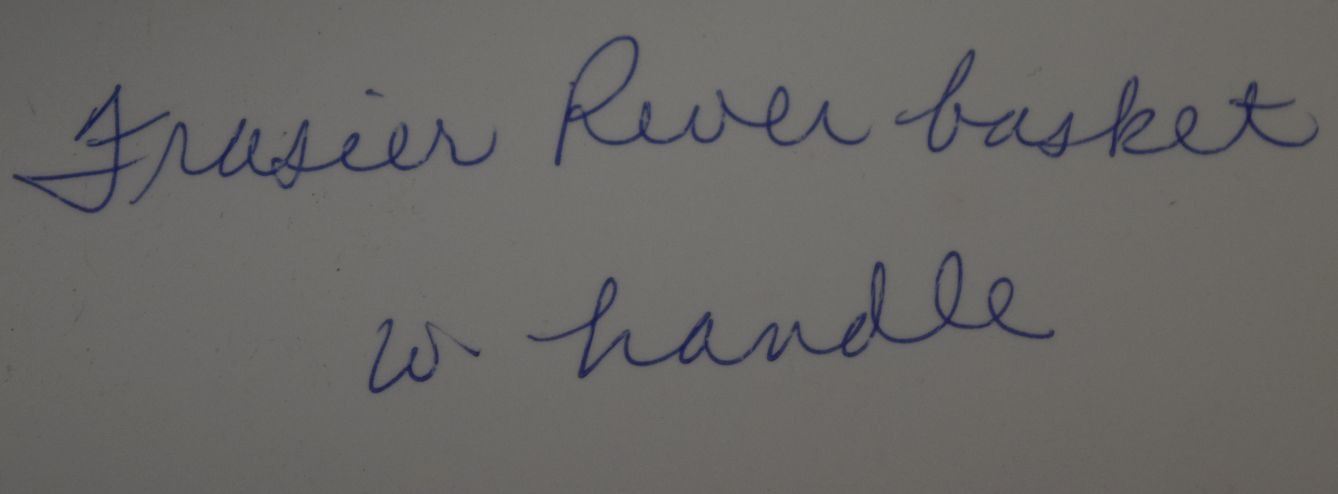 Frasier River basket
w handle